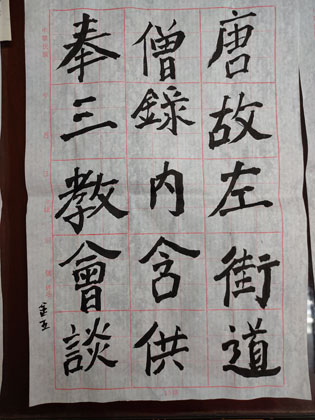 唐故左街道
僧錄内含供
奉三教會談